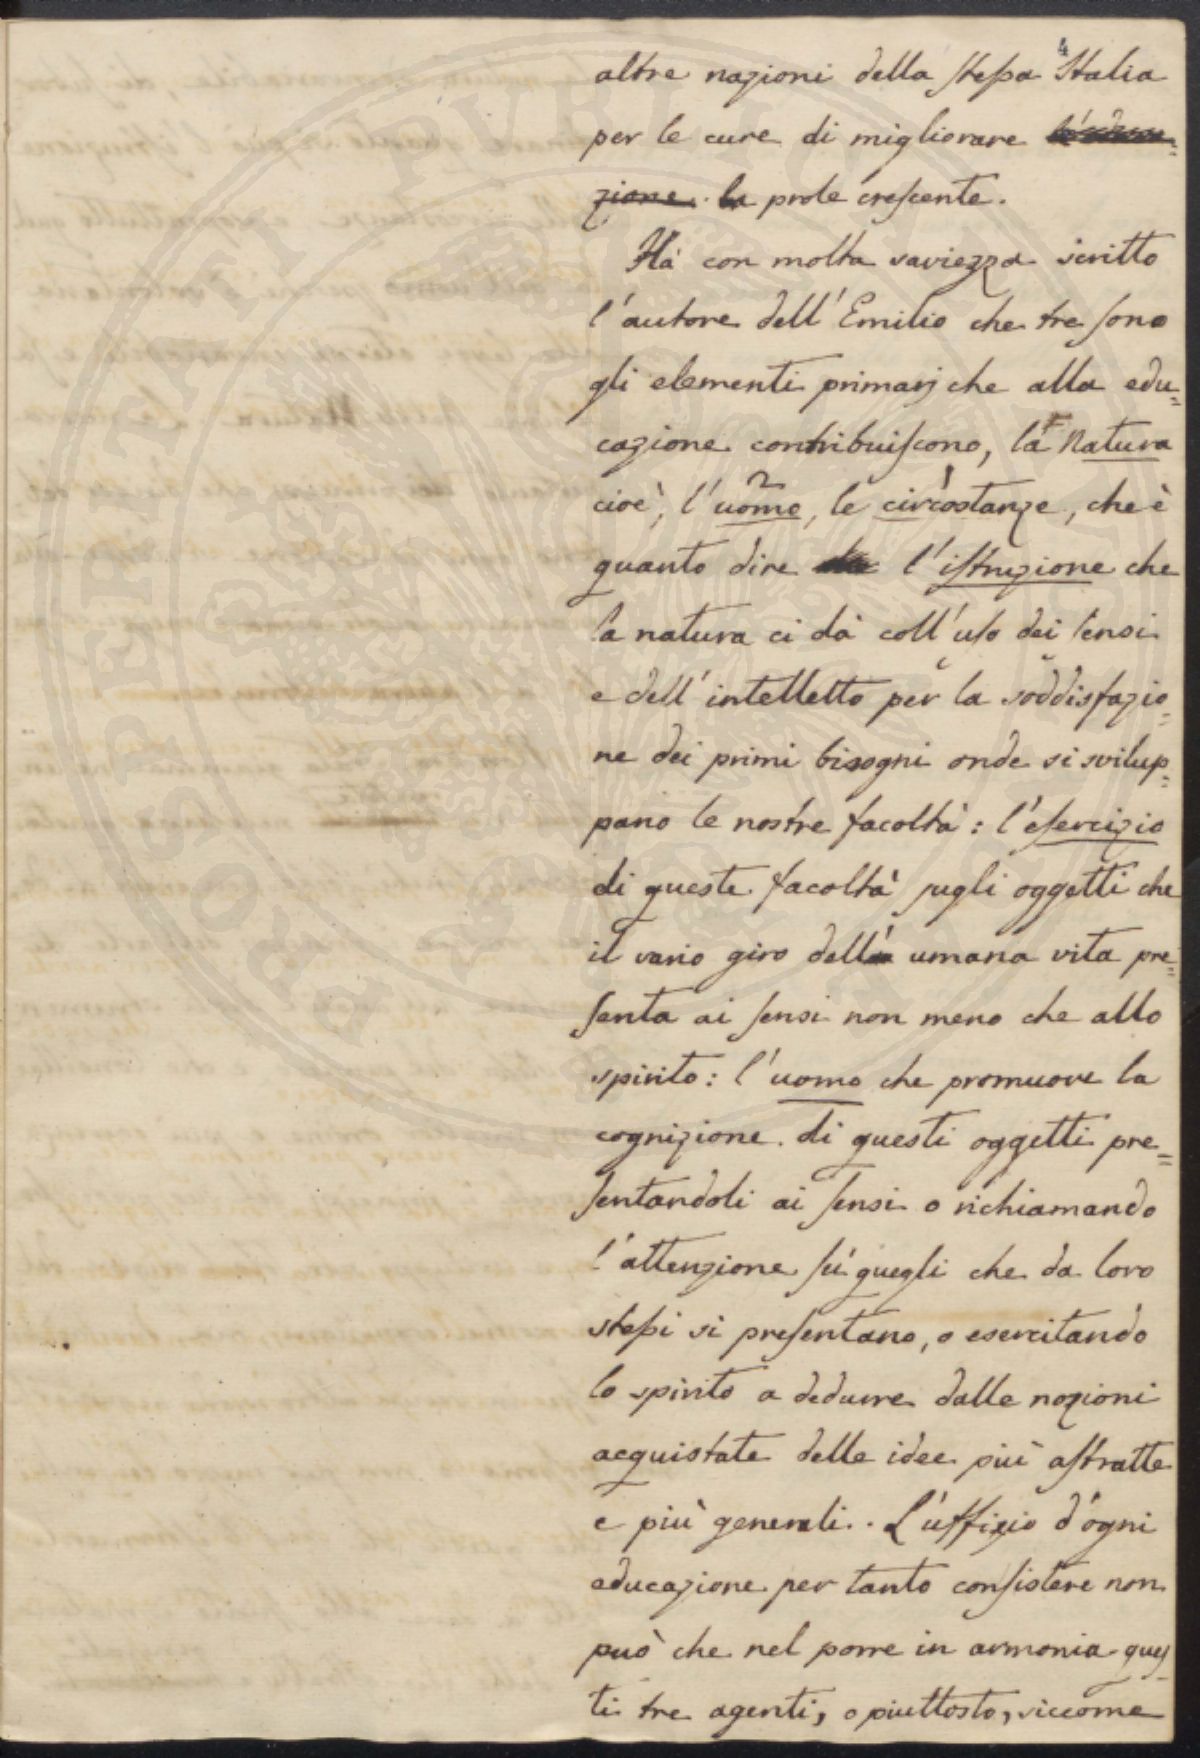 4
altre nazioni della stessa Italia
per le cure di migliorare l'educa=
zione. la prole crescente.
Hà con molta saviezza scritto
l'autore dell'Emilio che tre sono
gli elementi primarj che alla edu=
cazione contribuiscono, la Natura
cioè, l'uomo, le circostanze, che è
quanto dire l'istruzione che
la natura ci dà coll'uso dei sensi
e dell'intelletto per la soddisfazio=
ne dei primi bisogni onde si svilup=
pano le nostre facoltà: l'esercizio
di queste facoltà sugli oggetti che
il vario giro della umana vita pre=
senta ai sensi non meno che allo
spirito: l'uomo che promuove la
cognizione di questi oggetti pre=
sentandoli ai sensi o richiamando
l'attenzione sù quegli che da loro
stessi si presentano, o esercitando
lo spirito a dedurre dalle nozioni
acquistate delle idee più astratte
e più generali. L'uffizio d'ogni
educazione per tanto consistere non
può che nel porre in armonia ques=
ti tre agenti, o piuttosto, siccome
PROSPERITATI PVBLICAE